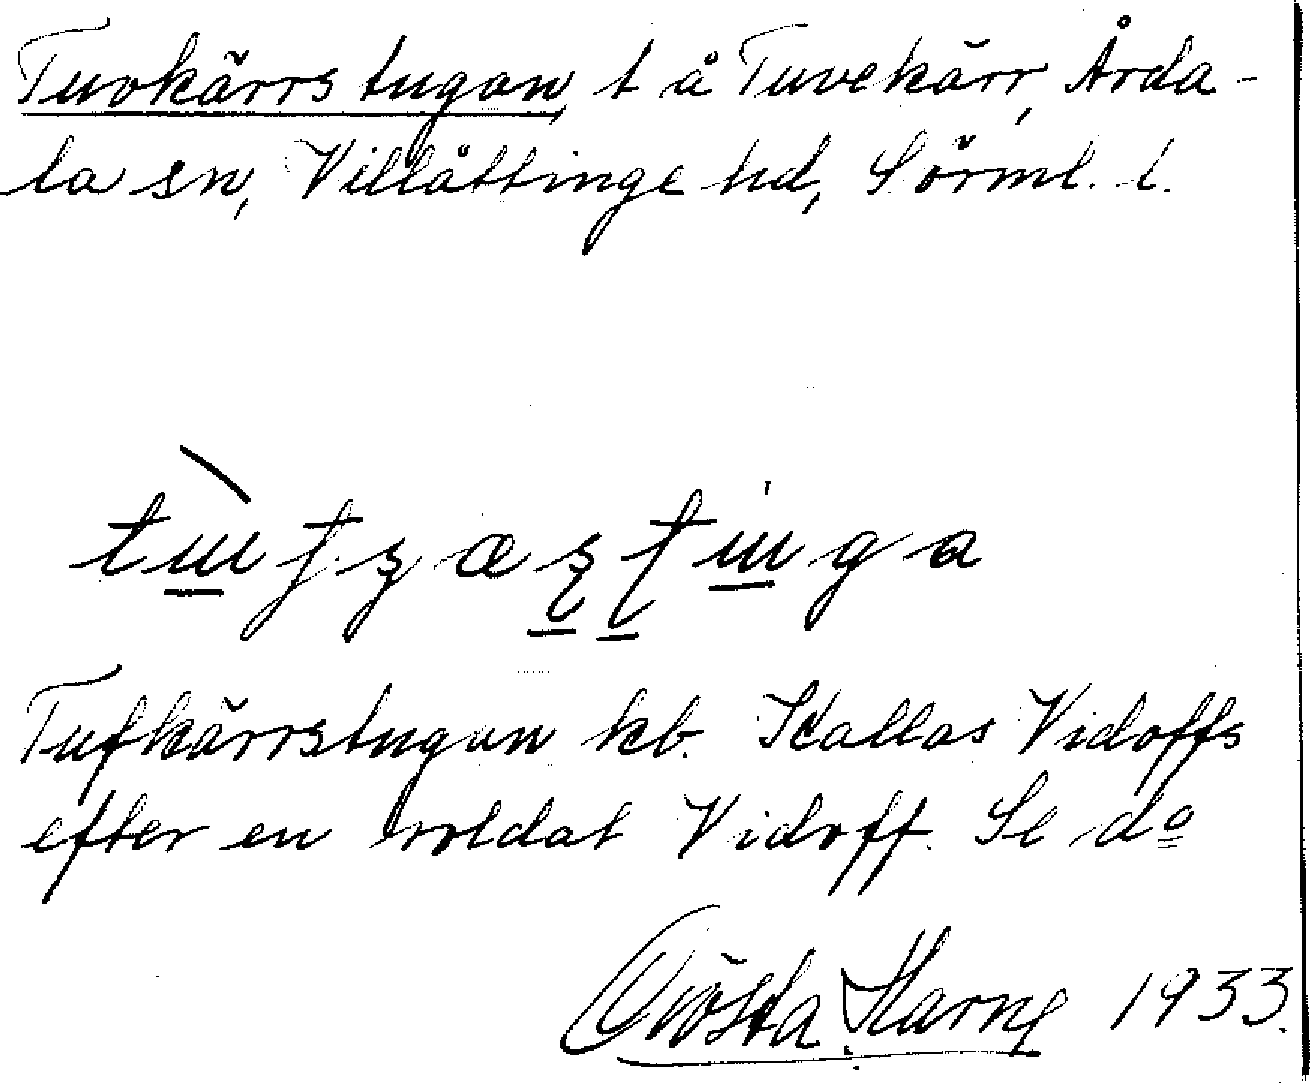 Tuvkärrstugan, t å Tuvekärr, Årda-
la sn, Villåttinge hd, Sörml. l.
Tufkärrstugan kb. Kallas Vidoffs
efter en soldat Vidoff. Se do
Gösta Harne 1933.